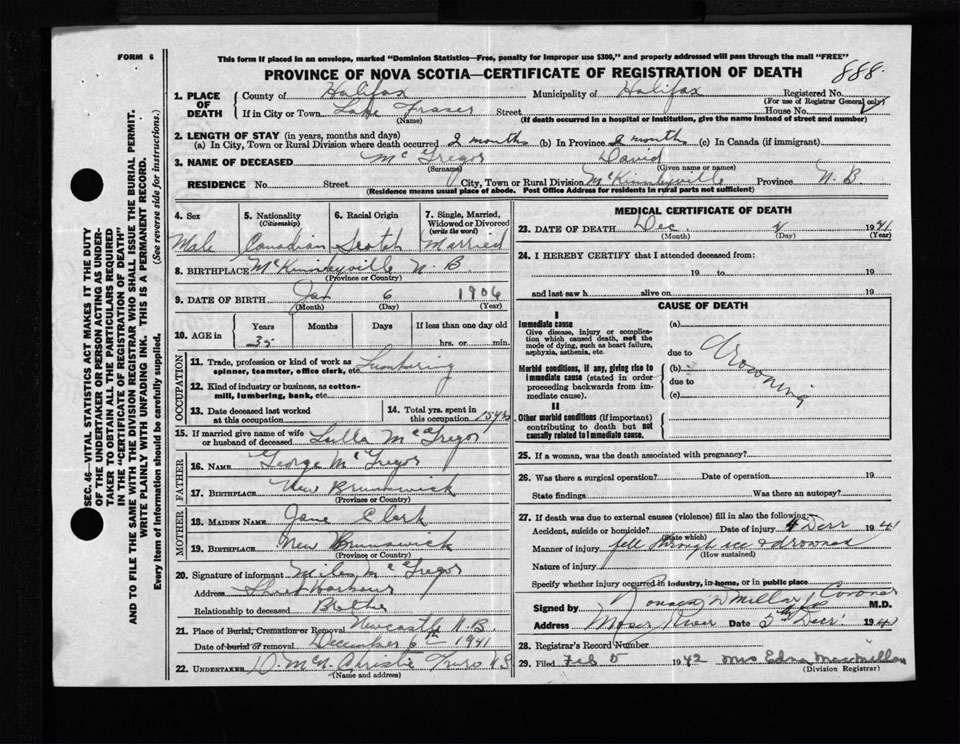 FORM 6
This form if placed in an envelope, marked "Dominion Statistics—Free, penalty for improper use $300," and properly addressed will pass through the mail "FREE"
PROVINCE OF NOVA SCOTIA—CERTIFICATE OF REGISTRATION OF DEATH
888
1. PLACE OF DEATH
County of Halifax Municipality of Halifax Registered No.
(For use of Registrar General only)
If in City or Town Lake Fraser Street House No.
(Name) (If death occurred in a hospital or institution, give the name instead of street and number)
2. LENGTH OF STAY (in years, months and days)
(a) In City, Town or Rural Division where death occurred 2 months (b) In Province 2 months (c) In Canada (if immigrant)
3. NAME OF DECEASED McGregor David
(Surname) (Given name or names)
RESIDENCE No. Street City, Town or Rural Division McKinleyville Province N.B
(Residence means usual place of abode. Post Office Address for residents in rural parts not sufficient)
4. Sex
Male
5. Nationality
(Citizenship)
Canadian
6. Racial Origin
Scotch
7. Single, Married, Widowed or Divorced
(write the word)
Married
8. BIRTHPLACE McKinleyville N.B
(Province or Country)
9. DATE OF BIRTH Jan 6 1906
(Month) (Day) (Year)
10. AGE in
Years Months Days If less than one day old
35 hrs. or min.
OCCUPATION
11. Trade, profession or kind of work as spinner, teamster, office clerk, etc. Lumbering
12. Kind of industry or business, as cotton-mill, lumbering, bank, etc.
13. Date deceased last worked at this occupation
14. Total yrs. spent in this occupation 15 yrs
15. If married give name of wife or husband of deceased Lulla McGregor
FATHER
16. NAME George McGregor
17. BIRTHPLACE New Brunswick
(Province or Country)
MOTHER
18. MAIDEN NAME Jane Clark
19. BIRTHPLACE New Brunswick
(Province or Country)
20. Signature of informant Miles McGregor
Address Sheet Harbour
Relationship to deceased Brother
21. Place of Burial, Cremation or Removal Newcastle N.B
Date of burial or removal December 6th 1941
22. UNDERTAKER D. McN. Christie Truro N.S
(Name and address)
MEDICAL CERTIFICATE OF DEATH
23. DATE OF DEATH Dec. 4 1941
(Month) (Day) (Year)
24. I HEREBY CERTIFY that I attended deceased from:
19 to 19
and last saw h alive on 19
CAUSE OF DEATH
I
Immediate cause
Give disease, injury or complication which caused death, not the mode of dying, such as heart failure, asphyxia, asthenia, etc.
Morbid conditions, if any, giving rise to immediate cause (stated in order proceeding backwards from immediate cause).
II
Other morbid conditions (if important) contributing to death but not causally related to immediate cause.
(a)
due to
(b)
due to
(c)
drowning
25. If a woman, was the death associated with pregnancy?
26. Was there a surgical operation? Date of operation 19
State findings Was there an autopsy?
27. If death was due to external causes (violence) fill in also the following:
Accident, suicide or homicide? Date of injury 4 Decr 1941
(State which)
Manner of injury fell through ice & drowned
(How sustained)
Nature of injury
Specify whether injury occurred in industry, in home, or in public place
Signed by Ronald D Millar Coroner M.D.
Address Moser River Date 5th Decr. 1941
28. Registrar's Record Number
29. Filed Feb 5 1942 Mrs Edna MacMillan
(Division Registrar)
SEC. 46—VITAL STATISTICS ACT MAKES IT THE DUTY
OF THE UNDERTAKER OR PERSON ACTING AS UNDER-
TAKER TO OBTAIN ALL THE PARTICULARS REQUIRED
IN THE "CERTIFICATE OF REGISTRATION OF DEATH"
AND TO FILE THE SAME WITH THE DIVISION REGISTRAR WHO SHALL ISSUE THE BURIAL PERMIT.
WRITE PLAINLY WITH UNFADING INK. THIS IS A PERMANENT RECORD.
Every item of information should be carefully supplied. (See reverse side for instructions.)